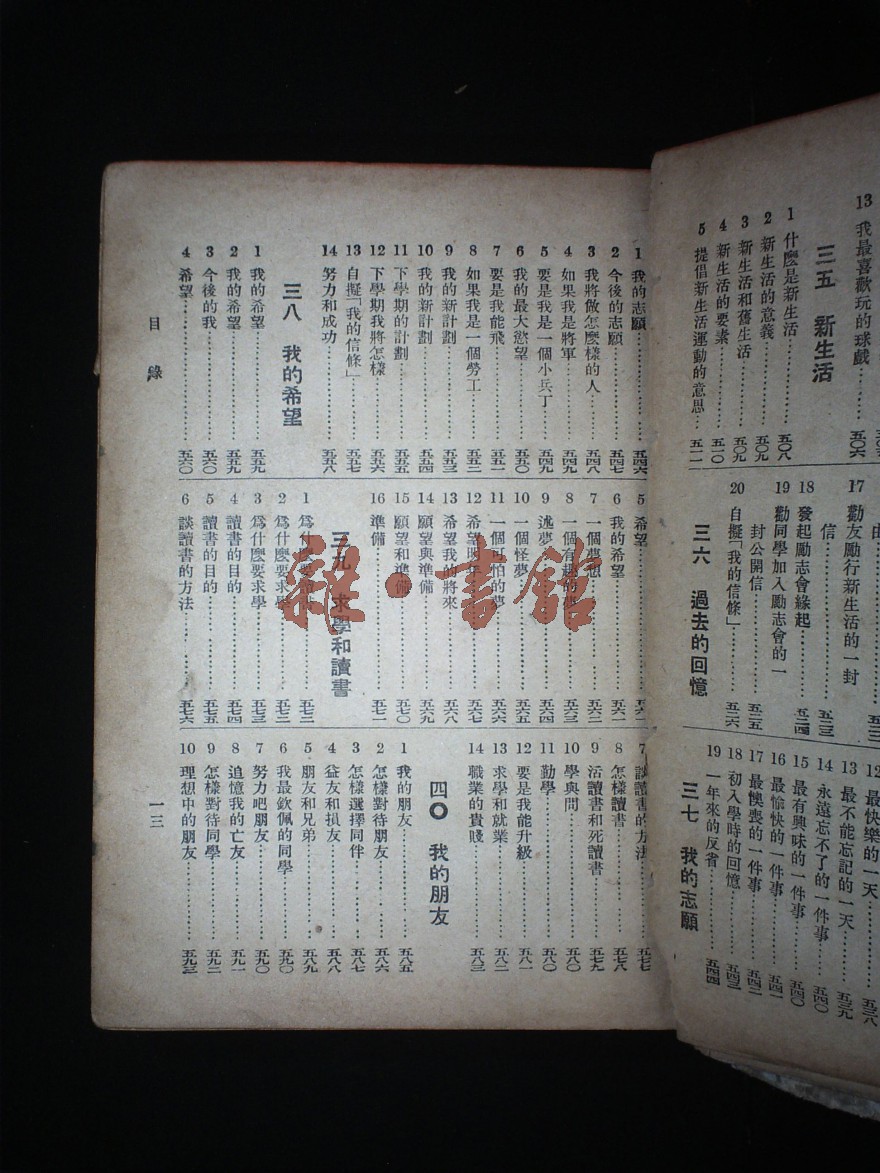 13 我最喜歡玩的球戲……五〇六
三五 新生活
1 什麼是新生活……五〇八
2 新生活的意義……五〇九
3 新生活和舊生活……五〇九
4 新生活的要素……五一〇
5 提倡新生活運動的意思……五一一
17 勸友勵行新生活的一封
信……五二三
18 發起勵志會緣起……五二四
19 勸同學加入勵志會的一
封公開信……五二五
20 自擬「我的信條」……五二六
三六 過去的回憶
12 最快樂的一天……五三八
13 最不能忘記的一天……五三九
14 永遠忘不了的一件事……五四〇
15 最有興味的一件事……五四〇
16 最愉快的一件事……五四一
17 最懊喪的一件事……五四二
18 初入學時的回憶……五四三
19 一年來的反省……五四四
三七 我的志願
1 我的志願……五四六
2 今後的志願……五四七
3 我將做怎麼樣的人……五四八
4 如果我是將軍……五四九
5 要是我是一個小兵丁……五四九
6 我的最大慾望……五五〇
7 要是我能飛……五五一
8 如果我是一個勞工……五五二
9 我的新計劃……五五三
10 我的新計劃……五五四
11 下學期的計劃……五五五
12 下學期我將怎樣……五五六
13 自擬「我的信條」……五五七
14 努力和成功……五五八
三八 我的希望
1 我的希望……五五九
2 我的希望……五五九
3 今後的我……五六〇
4 希望……五六〇
5 希望……五六一
6 我的希望……五六一
7 一個夢想……五六二
8 一個有趣的夢……五六三
9 述夢……五六四
10 一個怪夢……五六五
11 一個可怕的夢……五六六
12 希望明年……五六七
13 希望我的將來……五六八
14 願望與準備……五六九
15 願望和準備……五七〇
16 準備……五七一
三九 求學和讀書
1 為什麼要讀書……五七三
2 為什麼要求學……五七三
3 為什麼要求學……五七三
4 讀書的目的……五七四
5 讀書的目的……五七五
6 談讀書的方法……五七六
7 談讀書的方法……五七七
8 怎樣讀書……五七八
9 活讀書和死讀書……五七九
10 學與問……五八〇
11 勤學……五八〇
12 要是我能升級……五八一
13 求學和就業……五八二
14 職業的貴賤……五八三
四〇 我的朋友
1 我的朋友……五八五
2 怎樣對待朋友……五八六
3 怎樣選擇同伴……五八七
4 益友和損友……五八八
5 朋友和兄弟……五八九
6 我最欽佩的同學……五九〇
7 努力吧朋友……五九〇
8 追憶我的亡友……五九一
9 怎樣對待同學……五九二
10 理想中的朋友……五九三
目錄
一三
雜·書館